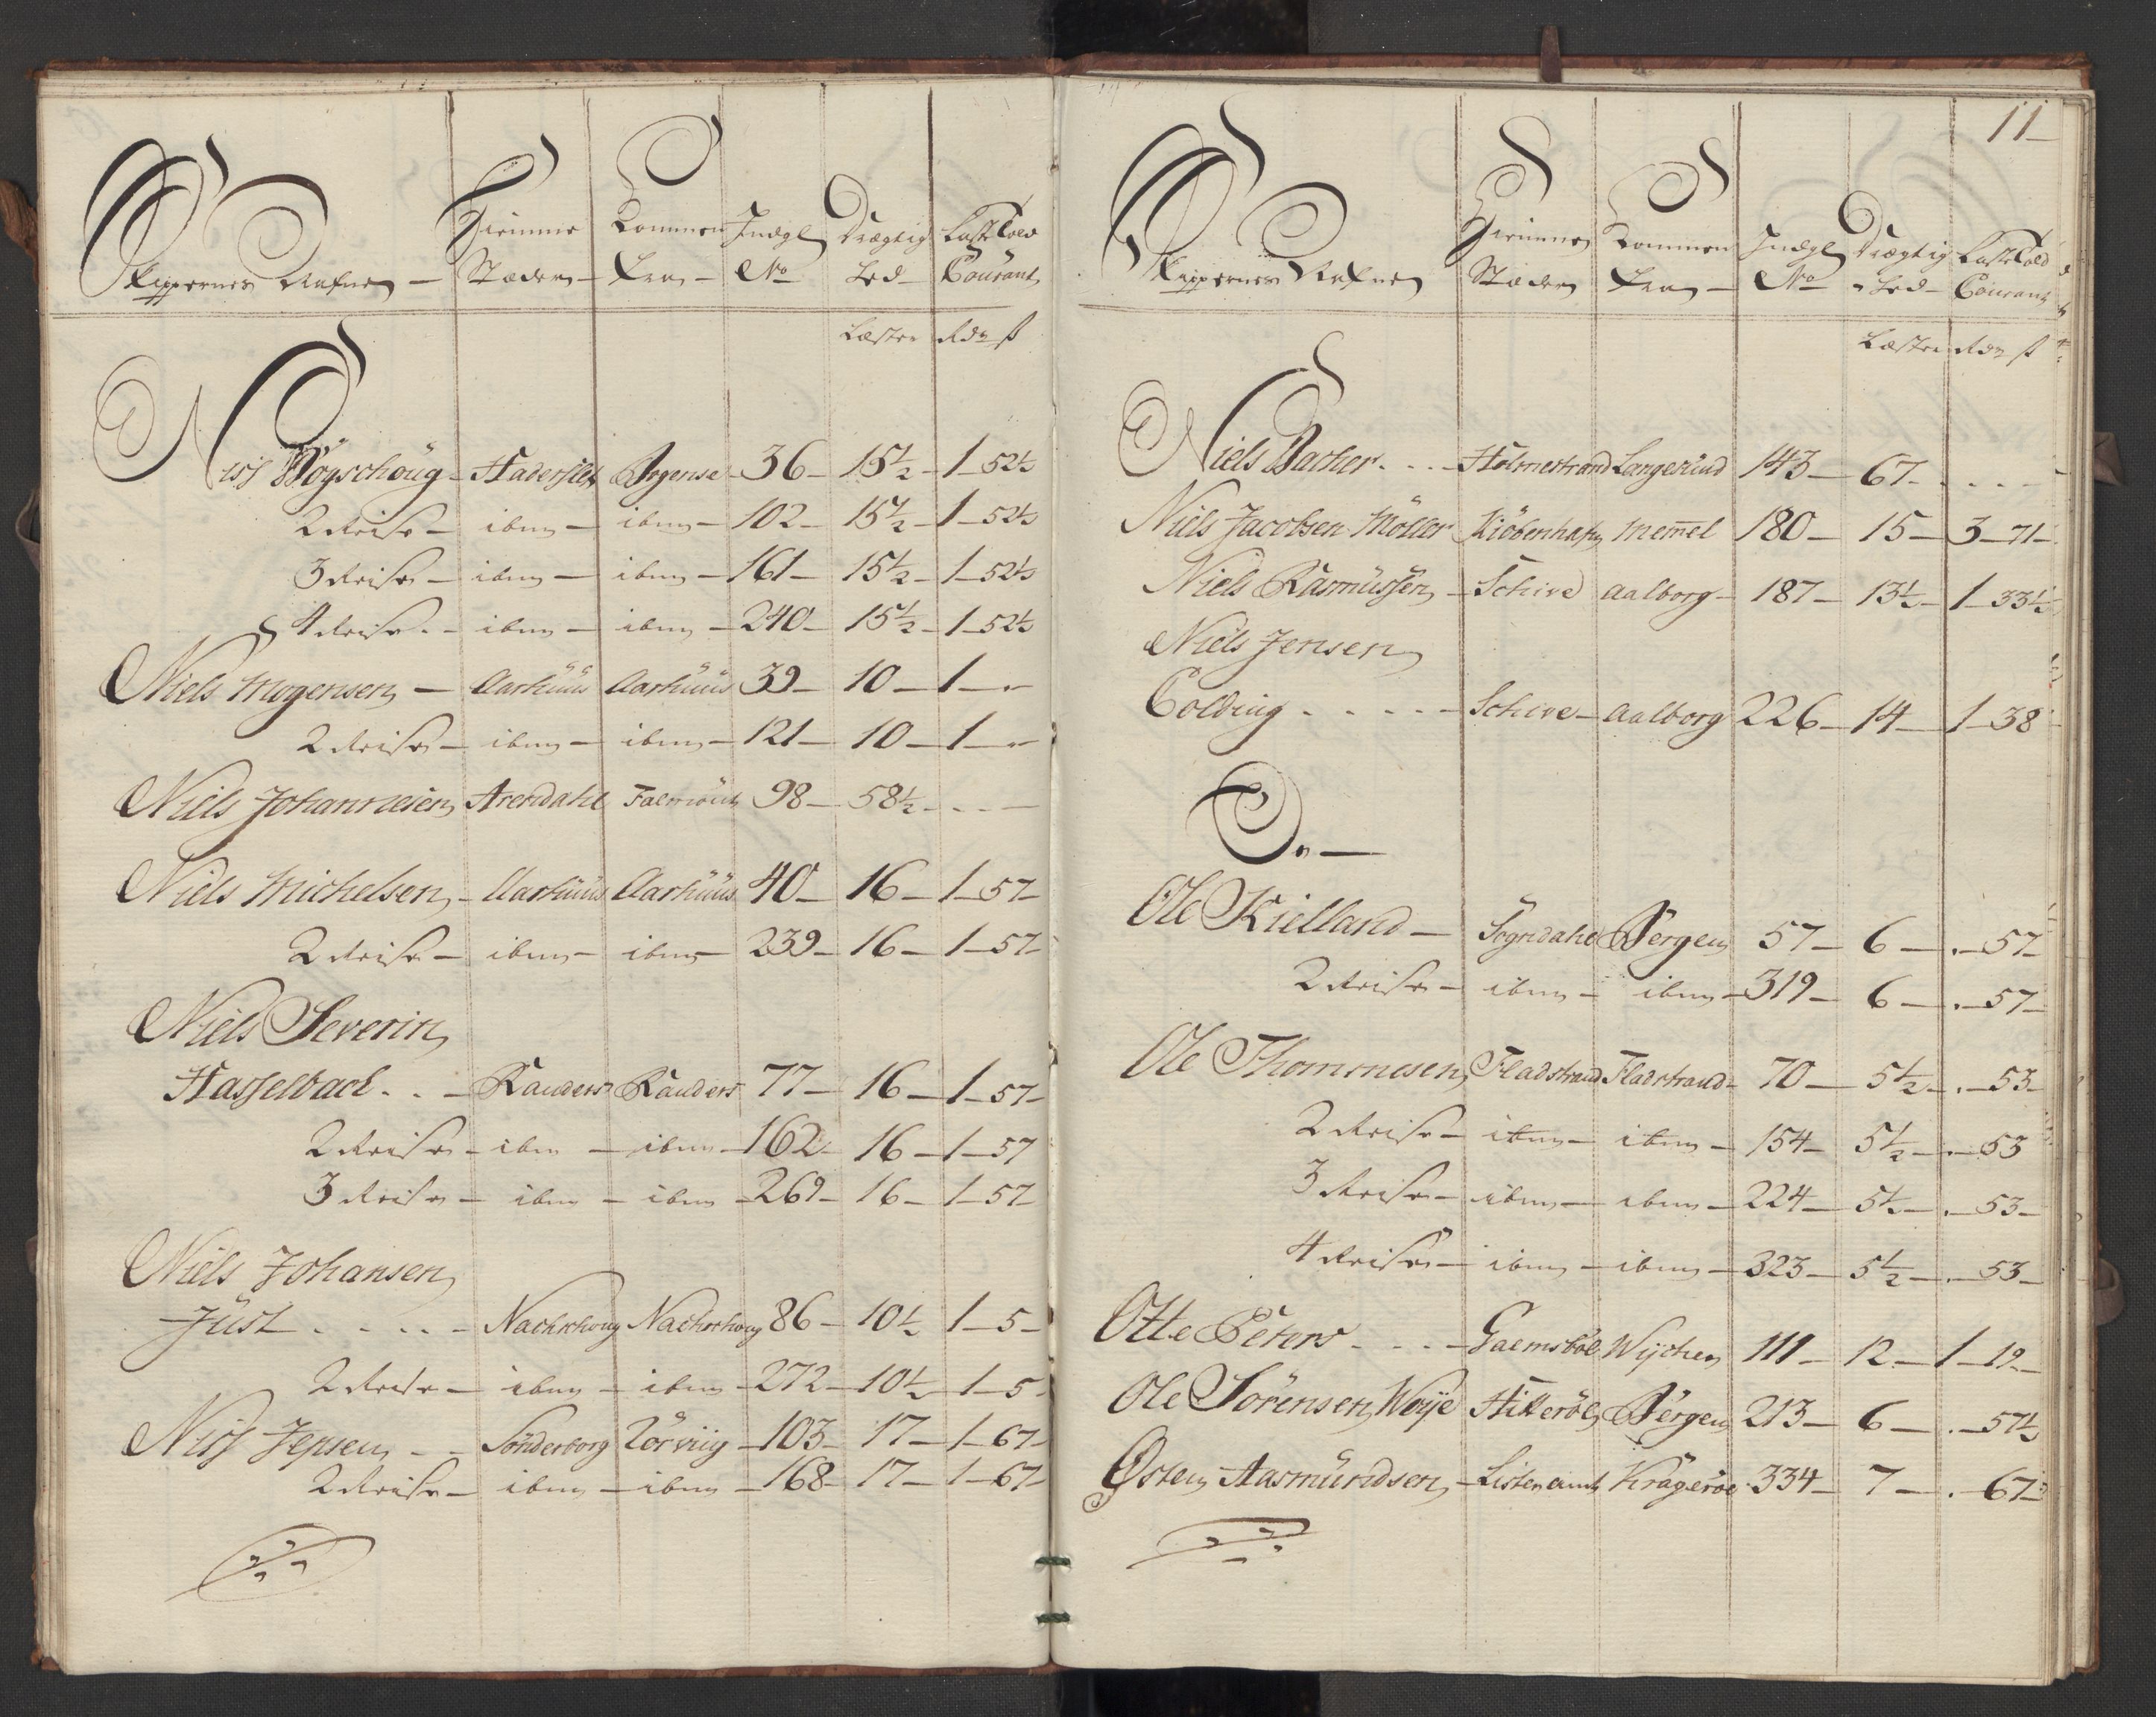 Skippernes Nafne — Hiemme Stæder — Kommen Fra — Indgl No Drægtig hed Laste Told Courant
Læster Rdr ß
Nis Høyschoug — Hadersleb Bogense — 36 — 15½ — 1 — 52½
2 Reise — ibm — ibm — 102 — 15½ — 1 — 52½
3 Reise — ibm — ibm — 161 — 15½ — 1 — 52½
4 Reise — ibm — ibm — 240 — 15½ — 1 — 52½
Niels Mogensen — Aarhuus Aarhuus 39 — 10 — 1 — „
2 Reise — ibm — ibm — 121 — 10 — 1 — „
Niels Johannesen Arendahl Falmouth 98 — 58½ - - —
Niels Michelsen — Aarhuus Aarhuus 40 — 16 — 1 — 57 —
2 Reise — ibm — ibm — 239 — 16 — 1 — 57 —
Niels Severin
Hasselbach . . — Randers Randers 77 — 16 — 1 — 57 —
2 Reise — ibm — ibm — 162 — 16 — 1 — 57
3 Reise — ibm — ibm — 269 — 16 — 1 — 57 —
Niels Johansen
Just . . . . — Nachschoug Nachschoug 86 — 10½ 1 — 5 —
2 Reise — ibm — ibm — 272 — 10½ — 1 — 5 —
Niss Jepsen — — Sønderborg Rörviig — 103 — 17 — 1 — 67 —
2 Reise — ibm — ibm — 168 — 17 — 1 — 67 —
11 —
Skippernes Nafne Hiemme Stæder Kommen Fra — Indgl No Drægtig hed — Laste Told Courant
Læster Rdr ß
Niels Bacher . . . — Holmestrand Langesund 143 — 67 - . . . —
Niels Jacobsen Möller Kiöbenhafn Memel 180 — 15 — 3 — 71 —
Niels Rasmussen — Schive Aalborg — 187 — 13½ — 1 — 33½
Niels Jensen
Colding . . . . — Schive — Aalborg 226 — 14 — 1 — 38
O. —
Ole Kielland — Sogndahl Bergen 57 — 6 — . — 57 —
2 Reise — ibm — ibm — 319 — 6 — . — 57 —
Ole Thommesen Fladstrand Fladstrand — 70 — 5½ — . — 53 —
2 Reise — ibm — ibm — 154 — 5½ — . — 53
3 Reise — ibm — ibm — 224 — 5½ — . — 53 —
4 Reise — ibm — ibm — 323 — 5½ — . — 53 —
Otte Peters . . . — Gaemsböl Wijchen 111 — 12 — 1 — 19 —
Ole Sörensen Woije Hitteröe Bergen 213 — 6 — . — 57½
Østen Aasmundsen — Lister amt Krageröe 334 — 7 — . — 67 —